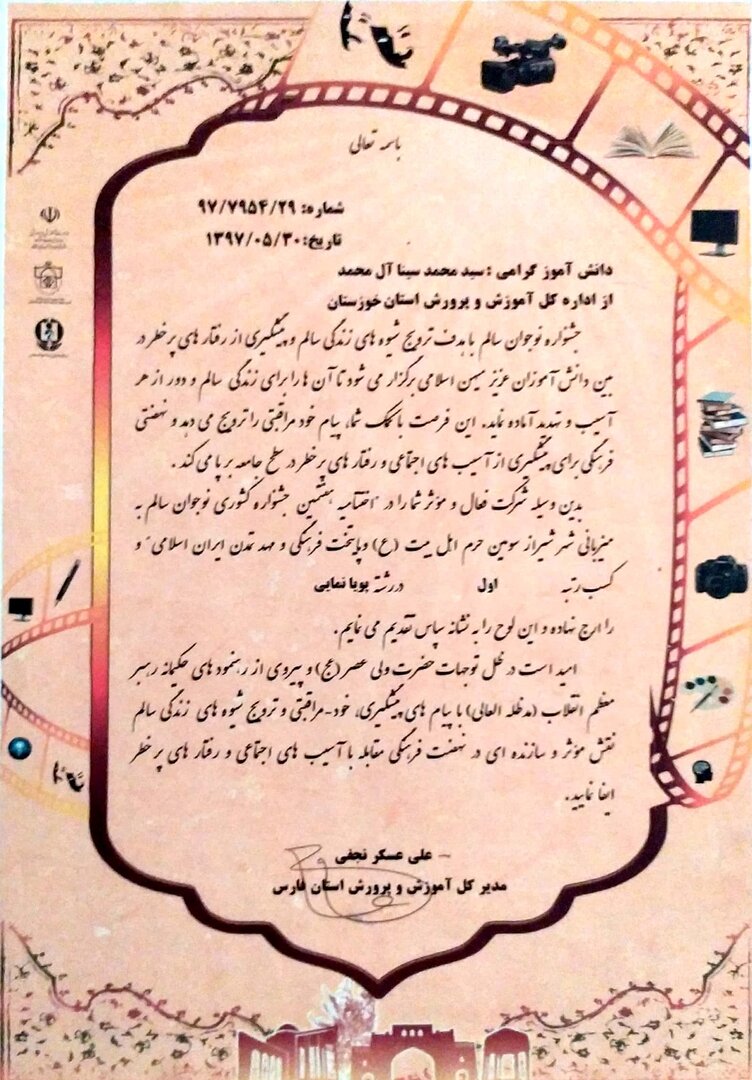 باسمه تعالی
شماره: ۹۷/۷۹۵۴/۲۹
تاریخ: ۱۳۹۷/۰۵/۳۰
دانش آموز گرامی : سید محمد سینا آل محمد
از اداره کل آموزش و پرورش استان خوزستان
جشنواره نوجوان سالم با هدف ترویج شیوه های زندگی سالم و پیشگیری از رفتار های پر خطر در
بین دانش آموزان عزیز میهن اسلامی برگزار می شود تا آن ها را برای زندگی سالم و دور از هر
آسیب و تهدید آماده نماید. این فرصت با کمک شما، پیام خود مراقبتی را ترویج می دهد و نهضتی
فرهنگی برای پیشگیری از آسیب های اجتماعی و رفتار های پر خطر در سطح جامعه بر پا می کند .
بدین وسیله شرکت فعال و مؤثر شما را در "اختتامیه هشتمین جشنواره کشوری نوجوان سالم به
میزبانی شهر شیراز سومین حرم اهل بیت (ع) و پایتخت فرهنگی و مهد تمدن ایران اسلامی" و
کسب رتبه اول در رشته پویا نمایی
را ارج نهاده و این لوح را به نشانه سپاس تقدیم می نمایم.
امید است در ظل توجهات حضرت ولی عصر (عج) و پیروی از رهنمود های حکیمانه رهبر
معظم انقلاب (مدظله العالی) با پیام های پیشگیری، خود-مراقبتی و ترویج شیوه های زندگی سالم
نقش مؤثر و سازنده ای در نهضت فرهنگی مقابله با آسیب های اجتماعی و رفتار های پر خطر
ایفا نمایید.
علی عسکر نجفی
مدیر کل آموزش و پرورش استان فارس